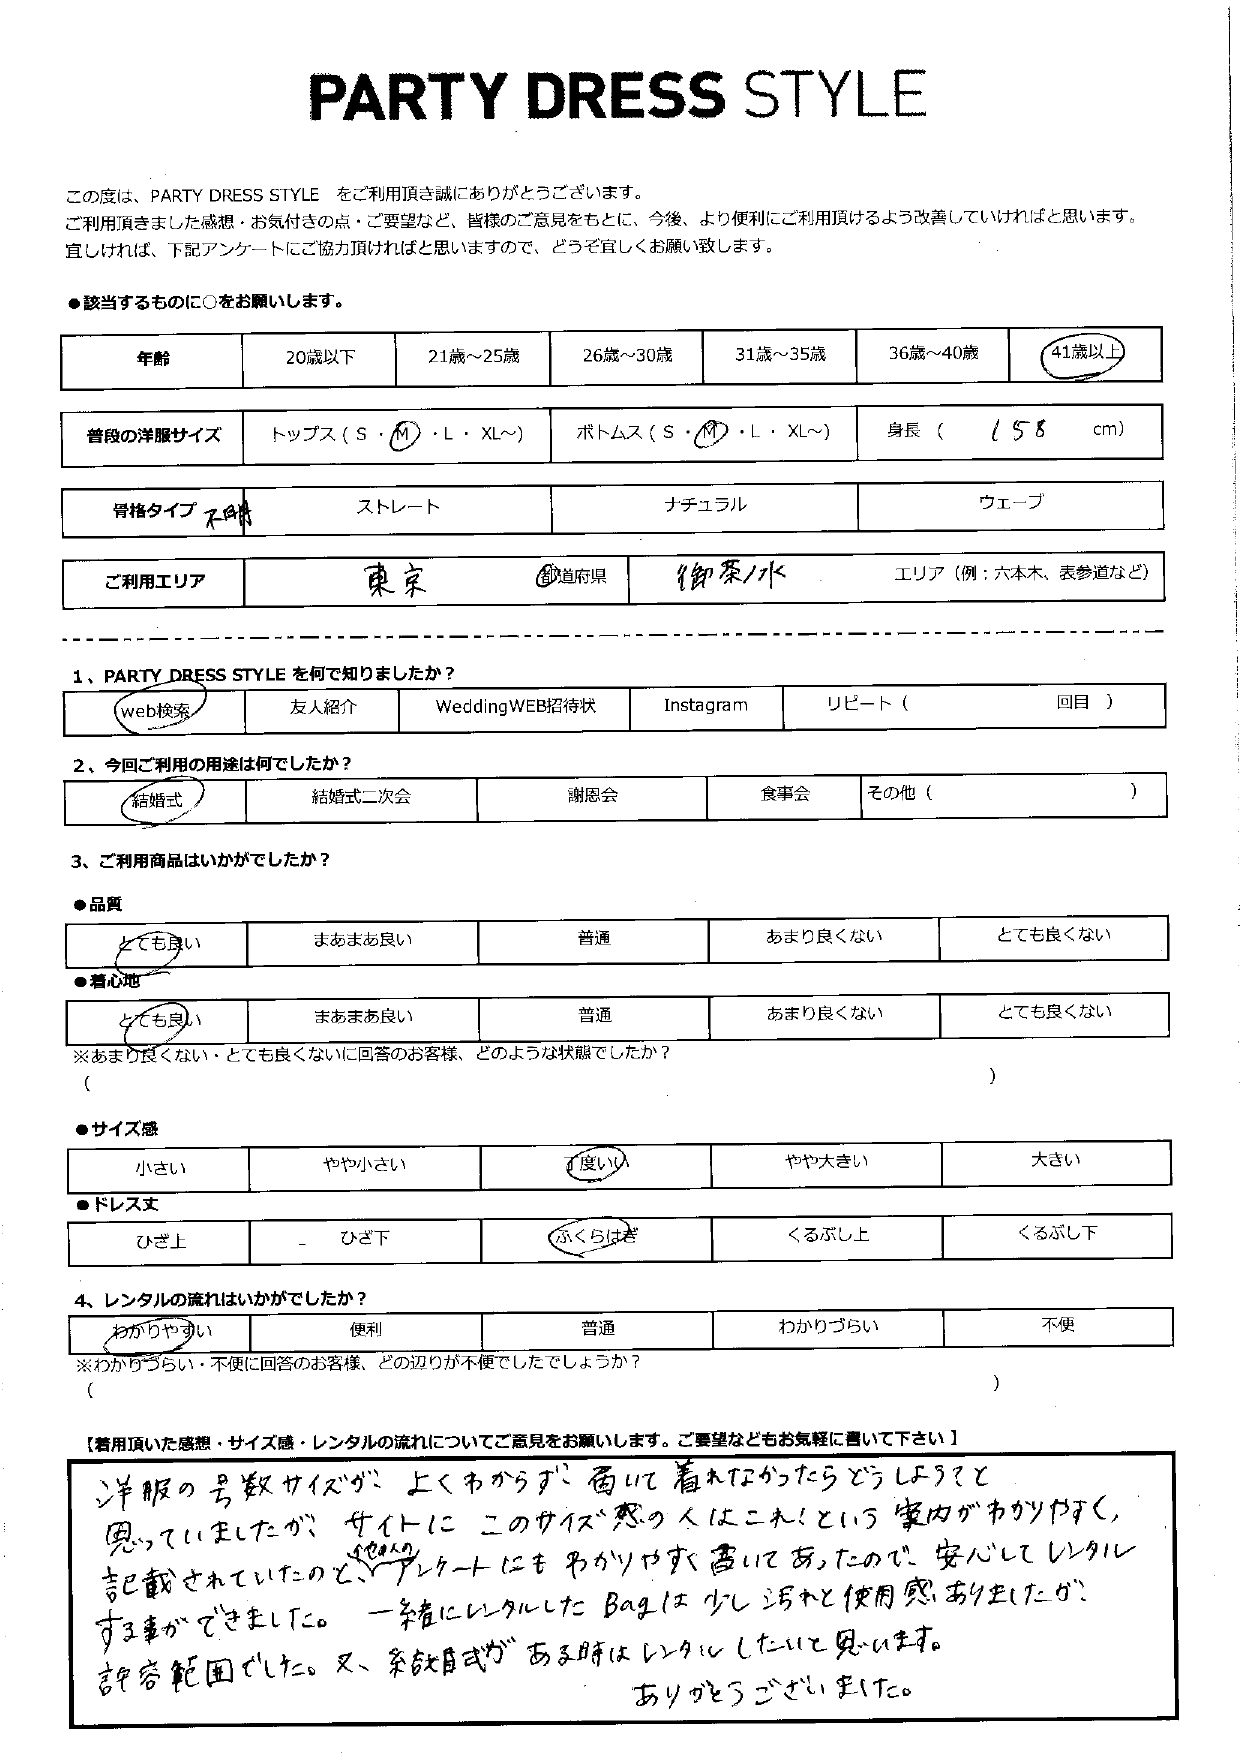 PARTY DRESS STYLE
この度は、PARTY DRESS STYLE をご利用頂き誠にありがとうございます。
ご利用頂きました感想・お気付きの点・ご要望など、皆様のご意見をもとに、今後、より便利にご利用頂けるよう改善していければと思います。
宜しければ、下記アンケートにご協力頂ければと思いますので、どうぞ宜しくお願い致します。
●該当するものに○をお願いします。
年齢 20歳以下 21歳～25歳 26歳～30歳 31歳～35歳 36歳～40歳 41歳以上
普段の洋服サイズ トップス ( S ・ M ・ L ・ XL～) ボトムス ( S ・ M ・ L ・ XL～) 身長 ( 158 cm)
骨格タイプ 不明 ストレート ナチュラル ウェーブ
ご利用エリア 東京 都道府県 御茶ノ水 エリア（例：六本木、表参道など）
1、PARTY DRESS STYLE を何で知りましたか？
web検索 友人紹介 WeddingWEB招待状 Instagram リピート ( 回目 )
2、今回ご利用の用途は何でしたか？
結婚式 結婚式二次会 謝恩会 食事会 その他 ( )
3、ご利用商品はいかがでしたか？
●品質
とても良い まあまあ良い 普通 あまり良くない とても良くない
●着心地
とても良い まあまあ良い 普通 あまり良くない とても良くない
※あまり良くない・とても良くないに回答のお客様、どのような状態でしたか？
( )
●サイズ感
小さい やや小さい 丁度いい やや大きい 大きい
●ドレス丈
ひざ上 ひざ下 ふくらはぎ くるぶし上 くるぶし下
4、レンタルの流れはいかがでしたか？
わかりやすい 便利 普通 わかりづらい 不便
※わかりづらい・不便に回答のお客様、どの辺りが不便でしたでしょうか？
( )
【着用頂いた感想・サイズ感・レンタルの流れについてご意見をお願いします。ご要望などもお気軽に書いて下さい】
洋服の号数サイズが、よくわからず、届いて着れなかったらどうしようと
思っていましたが、サイトに このサイズ感の人はこれ！という案内がわかりやすく，
記載されていたのと、他の人のアンケートにもわかりやすく書いてあったので、安心してレンタル
する事ができました。一緒にレンタルしたBagは少し汚れと使用感ありましたが、
許容範囲でした。又、結婚式がある時はレンタルしたいと思います。
ありがとうございました。